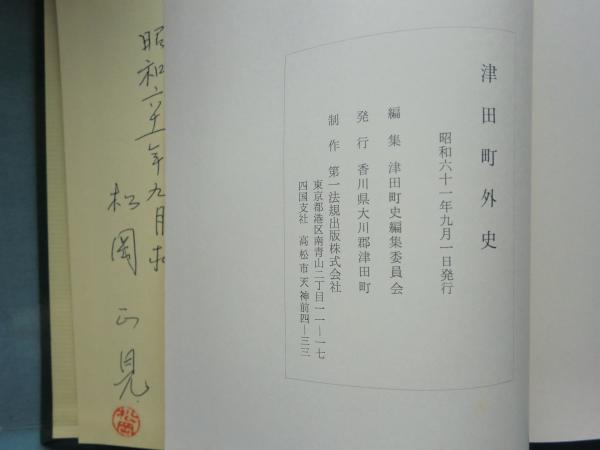 津田町外史
昭和六十一年九月一日発行
編集 津田町史編集委員会
発行 香川県大川郡津田町
制作 第一法規出版株式会社
東京都港区南青山二丁目一一―一七
四国支社 高松市天神前四―三三
昭和六十一年九月求
松岡正見
松岡